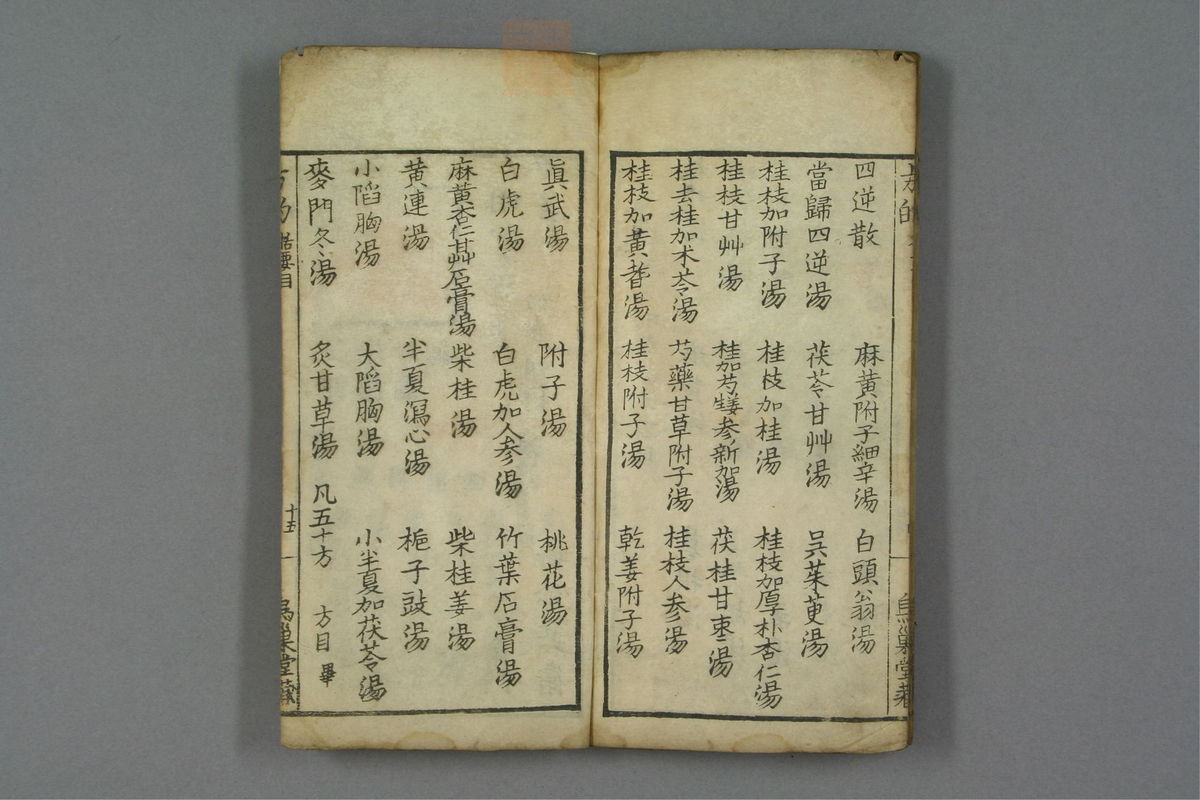 四逆散　麻黄附子細辛湯　白頭翁湯
當歸四逆湯　茯苓甘艸湯　呉茱萸湯
桂枝加附子湯　桂枝加桂湯　桂枝加厚朴杏仁湯
桂枝甘艸湯　桂加芍姜参新加湯　茯桂甘枣湯
桂去桂加朮苓湯　芍藥甘草附子湯　桂枝人参湯
桂枝加黄耆湯　桂枝附子湯　乾姜附子湯
眞武湯　附子湯　桃花湯
白虎湯　白虎加人参湯　竹葉石膏湯
麻黄杏仁甘艸石膏湯　柴桂湯　柴桂姜湯
黄連湯　半夏瀉心湯　梔子豉湯
小陷胸湯　大陷胸湯　小半夏加茯苓湯
麥門冬湯　炙甘草湯　凡五十方　方目畢
十五